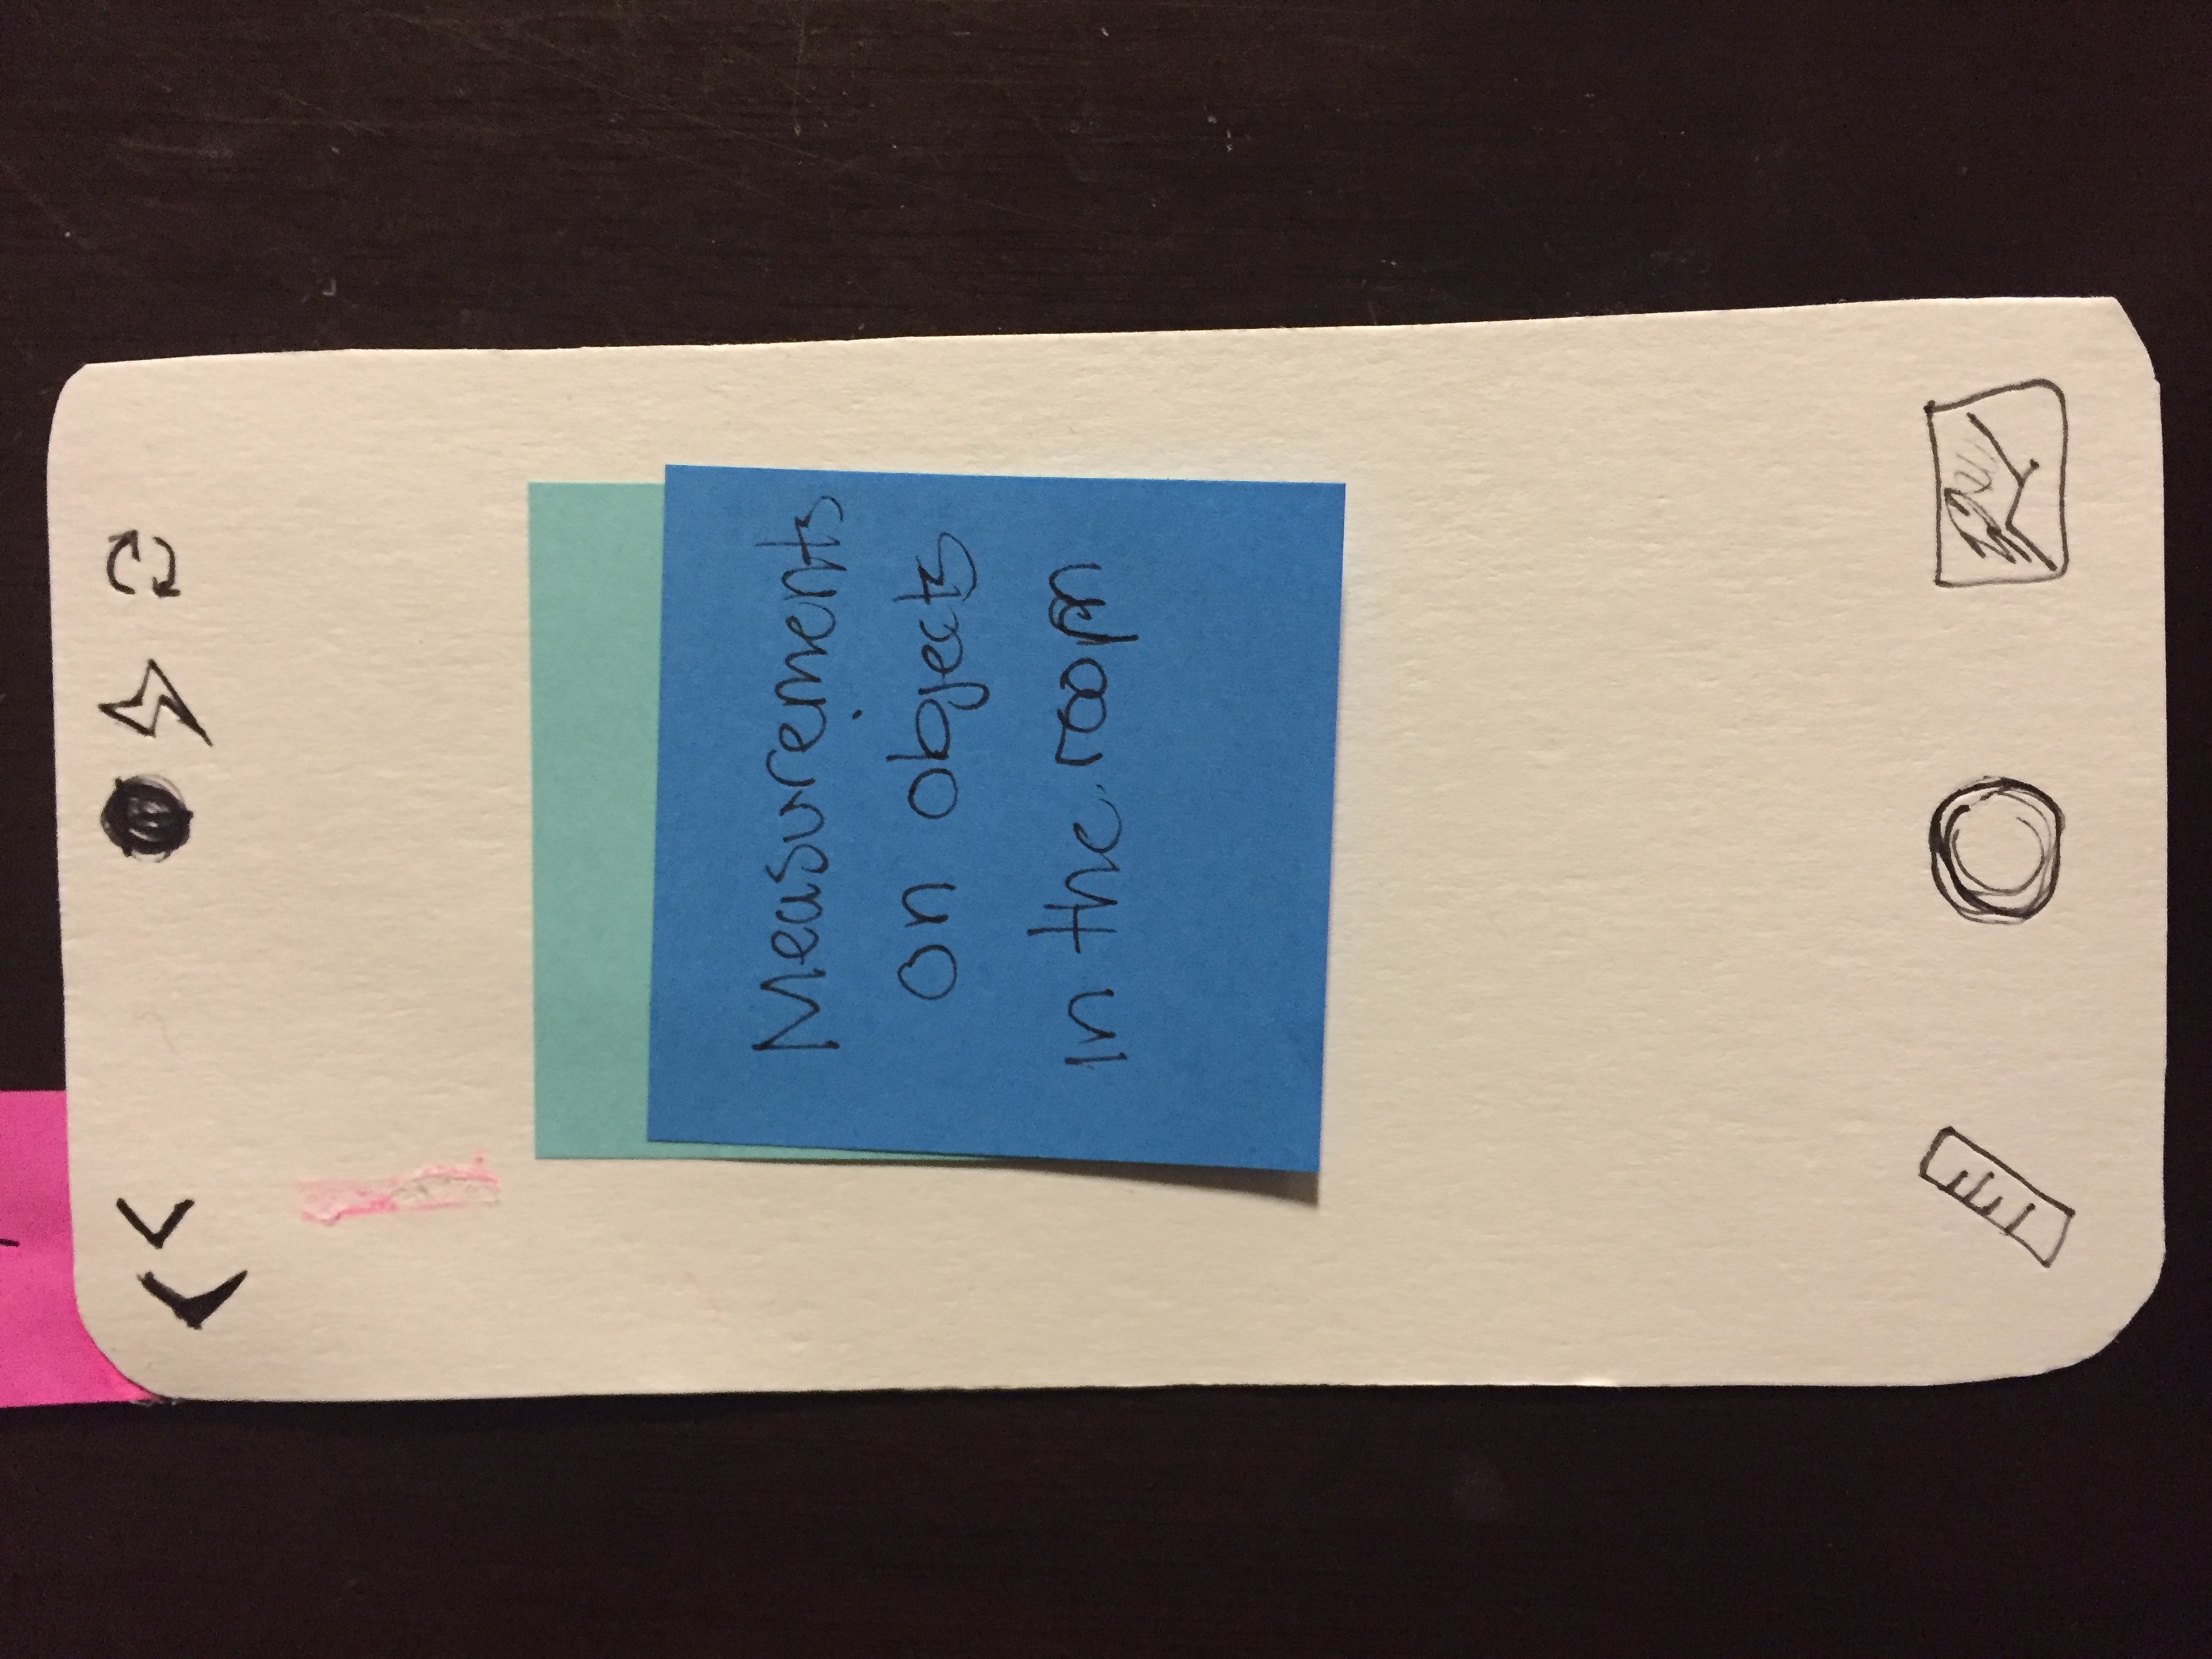 Measurements
on objects
in the room